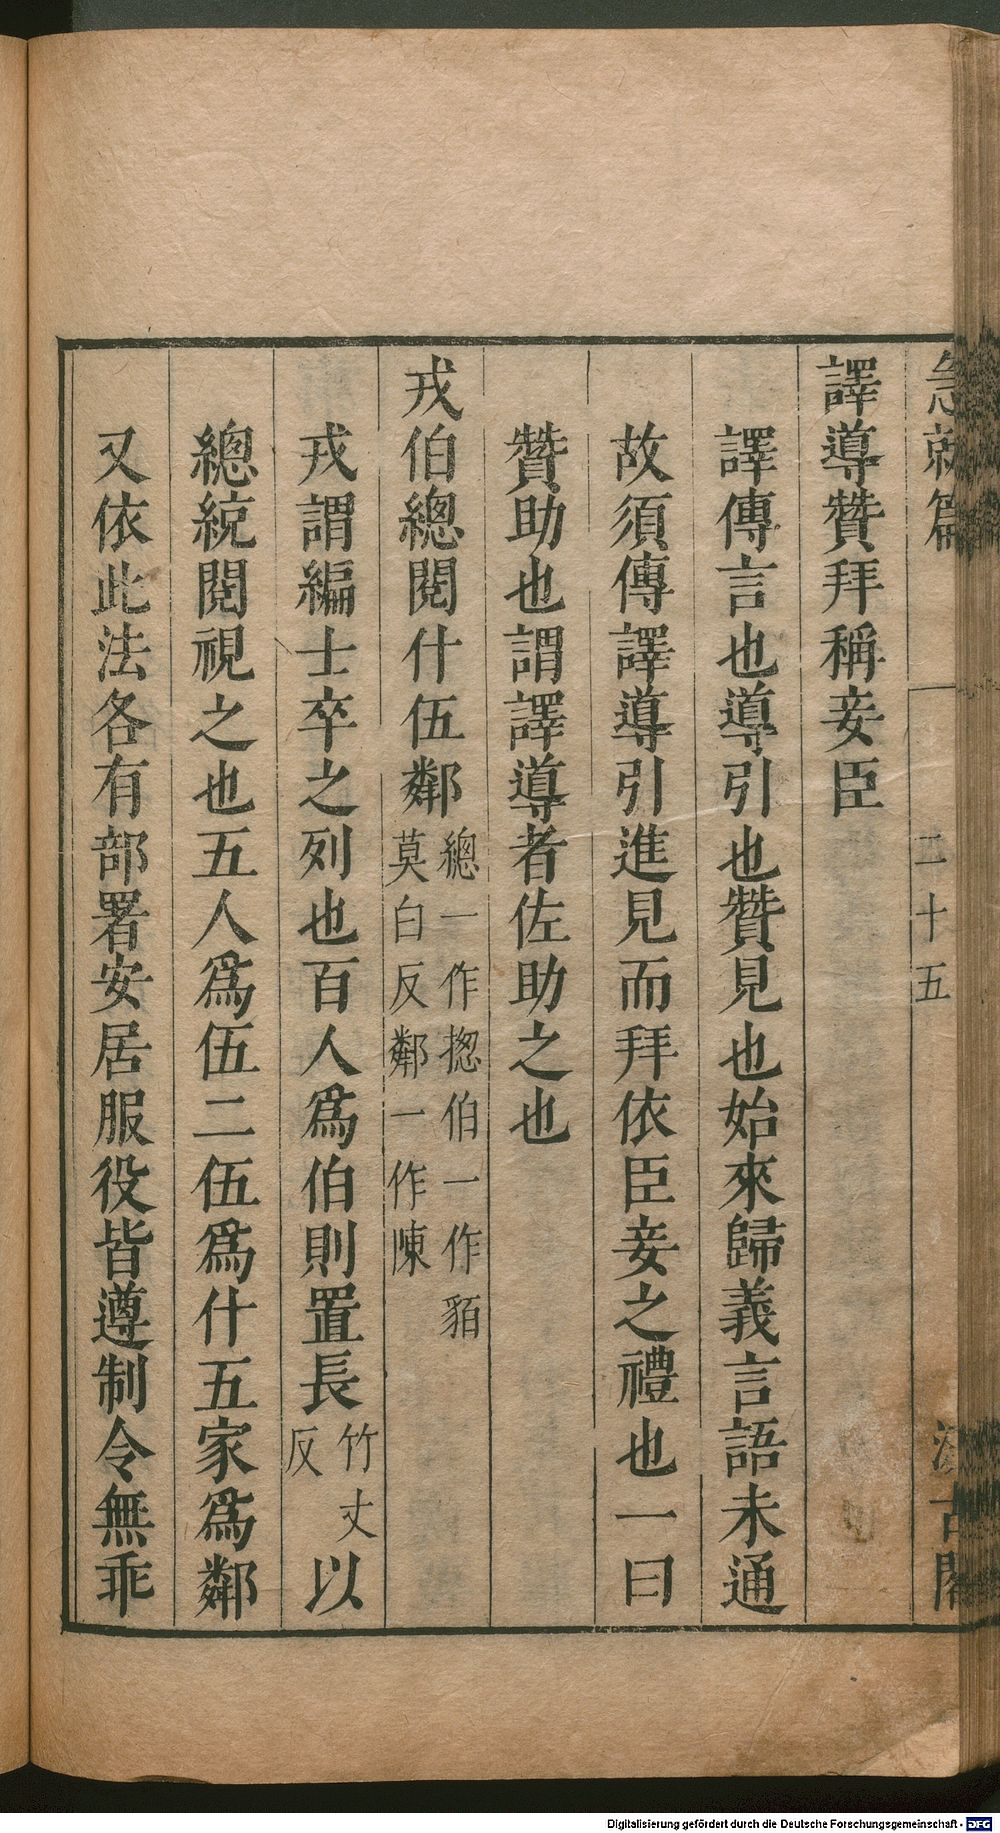 急就篇 二十五 汲古閣
譯導贊拜稱妾臣
譯傳言也導引也贊見也始來歸義言語未通
故須傳譯導引進見而拜依臣妾之禮也一曰
贊助也謂譯導者佐助之也
戎伯總閱什伍鄰 總一作揔伯一作貊
莫白反鄰一作陳
戎謂編士卒之列也百人爲伯則置長 竹丈反 以
總統閱視之也五人爲伍二伍爲什五家爲鄰
又依此法各有部署安居服役皆遵制令無乖
Digitalisierung gefördert durch die Deutsche Forschungsgemeinschaft - DFG